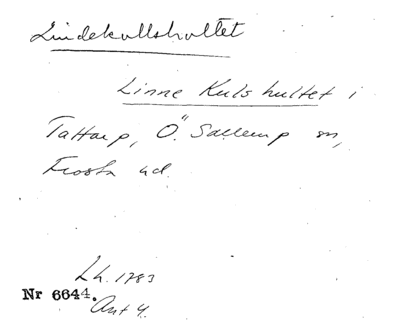 Lindekullshultet
Linne Kulshultet i
Tattarp, Ö. Sallerup sn,
Frosta hd.
Lh. 1783
Nr 6644.
Akt 4.